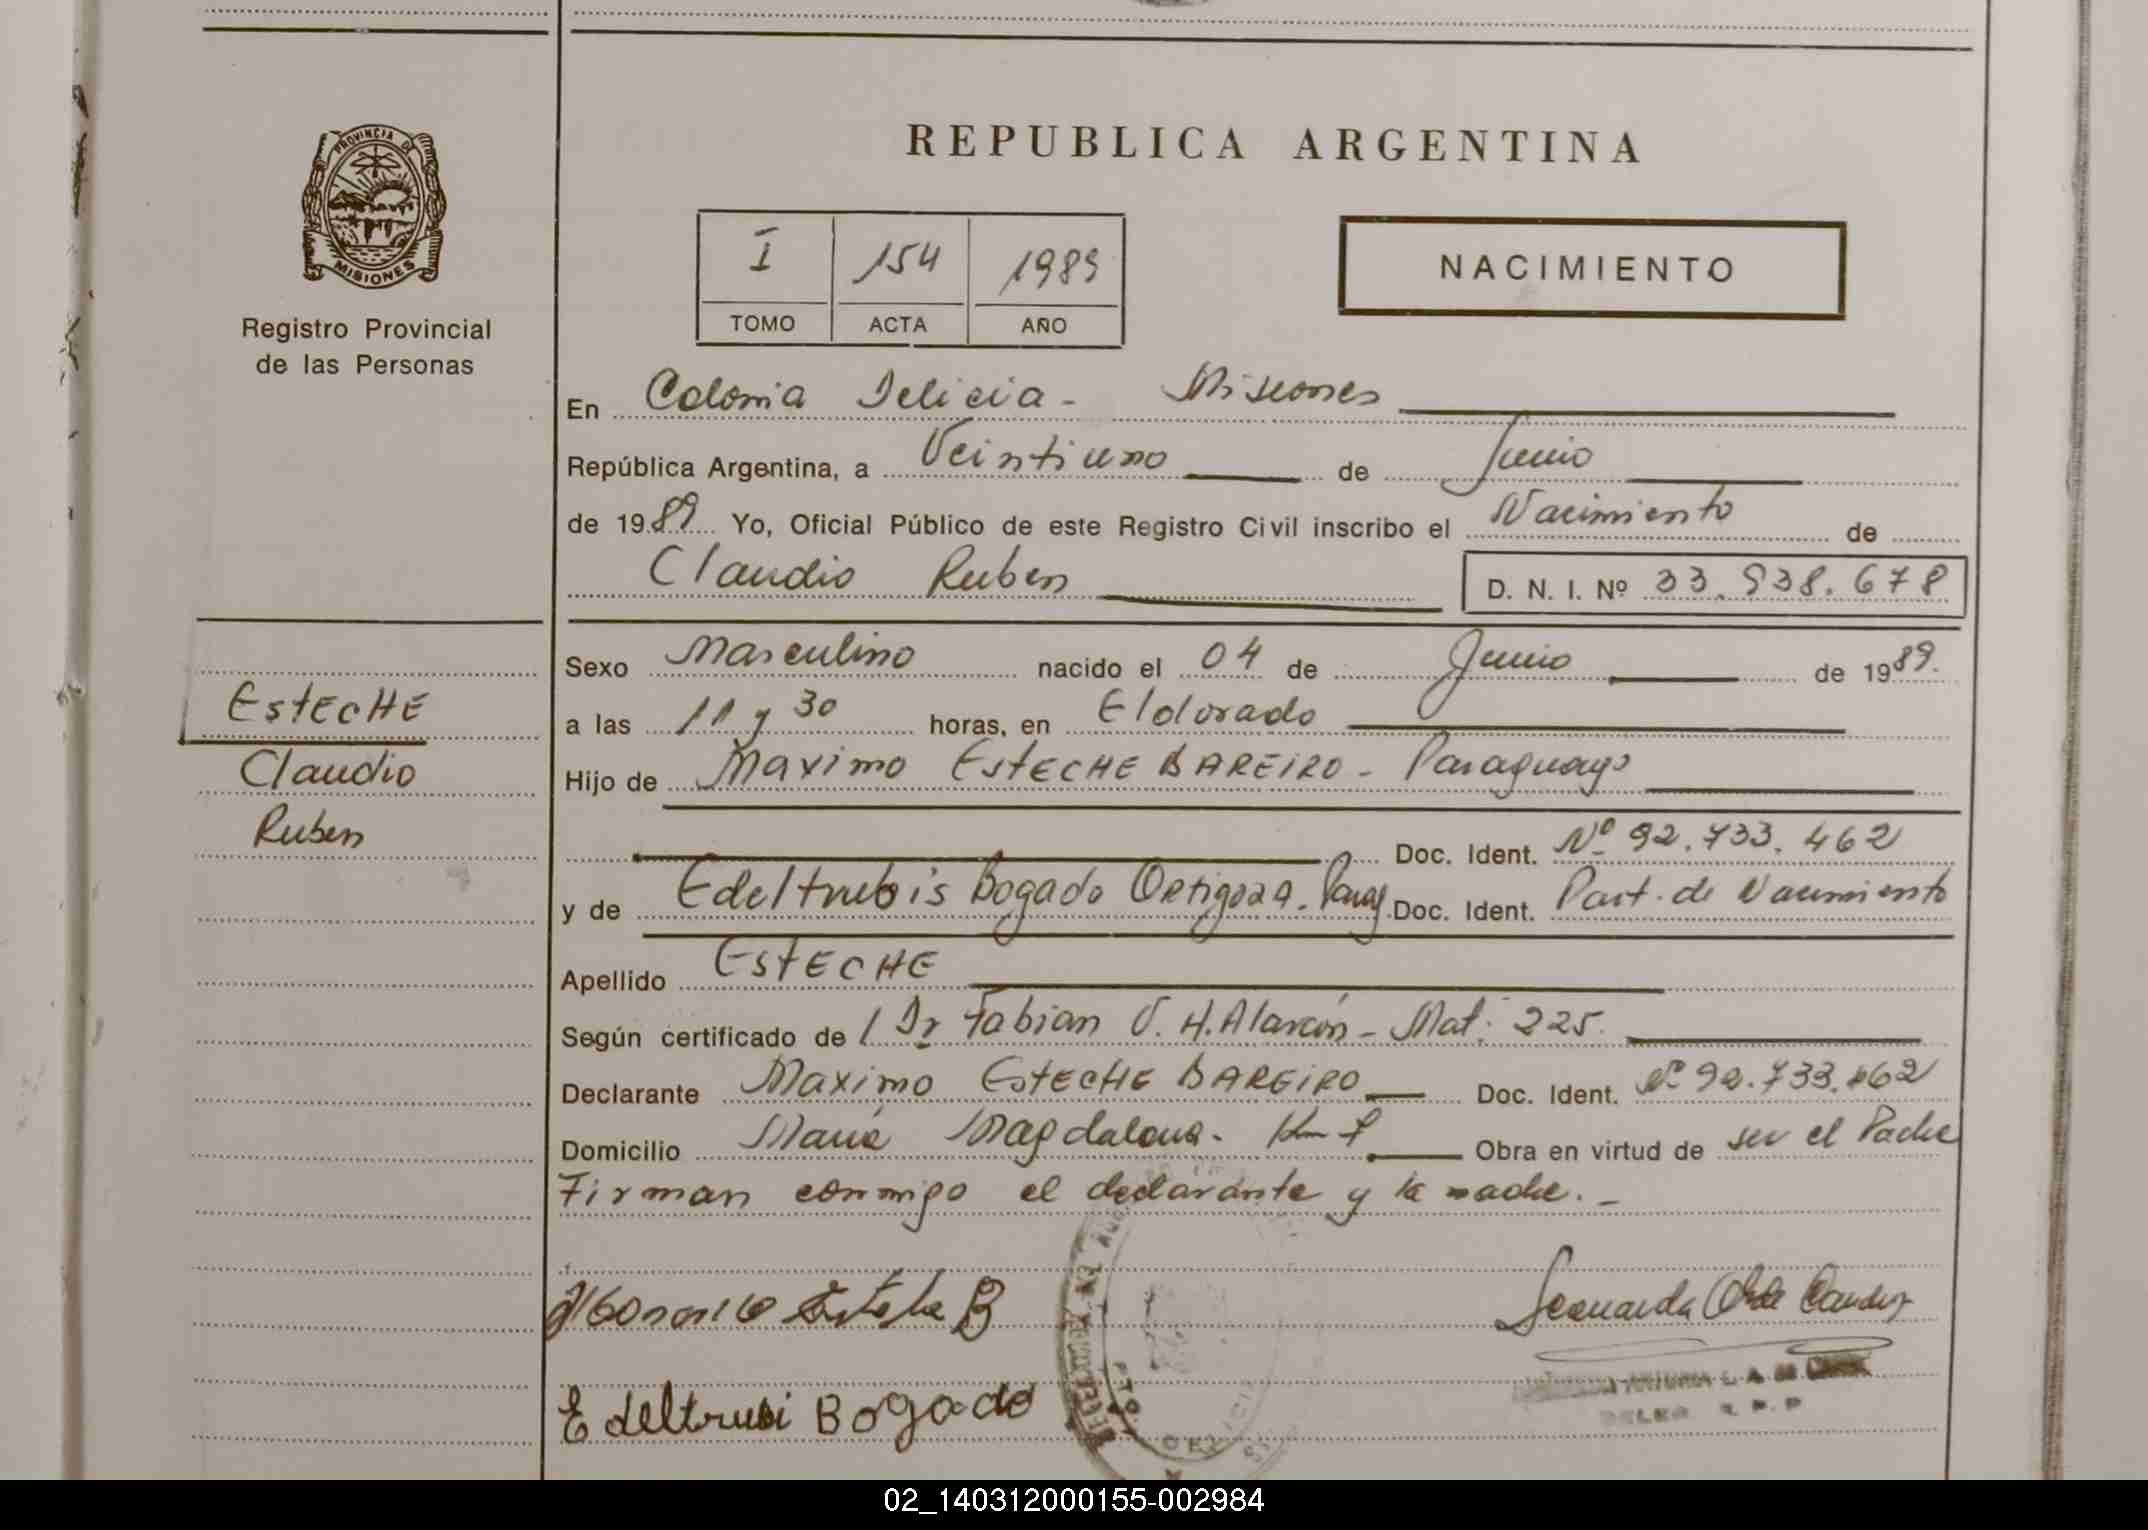 REPUBLICA ARGENTINA
PROVINCIA DE
MISIONES
Registro Provincial
de las Personas
I 154 1989
TOMO ACTA AÑO
NACIMIENTO
En Colonia Delicia - Misiones
República Argentina, a Veintiuno de Junio
de 1989 Yo, Oficial Público de este Registro Civil inscribo el Nacimiento de
Claudio Ruben D. N. I. Nº 33.938.678
Sexo Masculino nacido el 04 de Junio de 1989.
EstECHE
Claudio
Ruben
a las 11 y 30 horas, en Eldorado
Hijo de Maximo EstECHE BAREIRO - Paraguayo
Doc. Ident. Nº 92.733.462
y de Edeltrubis Bogado Ortigoza. Parag. Doc. Ident. Part. de Nacimiento
Apellido EstECHE
Según certificado de Dr Fabian V. H. Alarcón - Mat. 225.
Declarante Maximo EstECHE BAREIRO Doc. Ident. Nº 92.733.462
Domicilio María Magdalena. Km Obra en virtud de ser el Padre
Firman conmigo el declarante y la madre. -
B
Edeltrubi Bogado
PTO. DELICIA
02_140312000155-002984